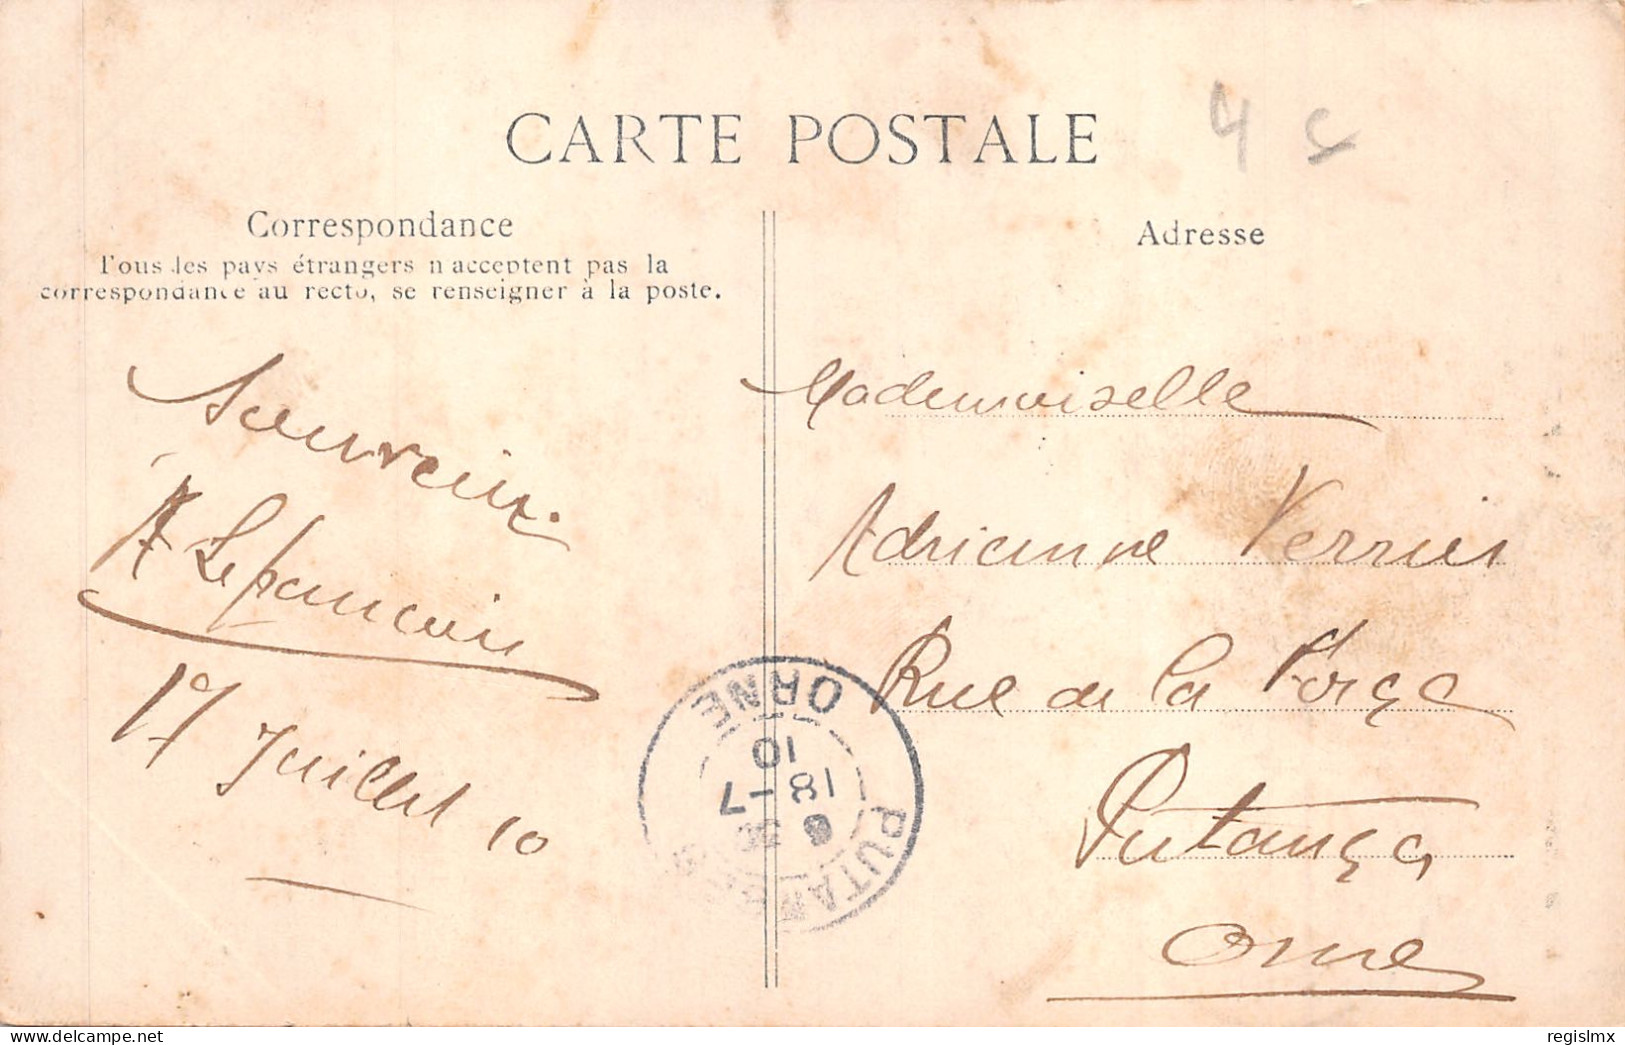 CARTE POSTALE
4
Correspondance
Tous les pays étrangers n'acceptent pas la
correspondance au recto, se renseigner à la poste.
Souvenir.
A
17 Juillet 10
Adresse
Mademoiselle
Adrienne Verrier
Rue de la Forge
Putange
Orne
PUTANGES
ORNE
18-7
10
regislmx